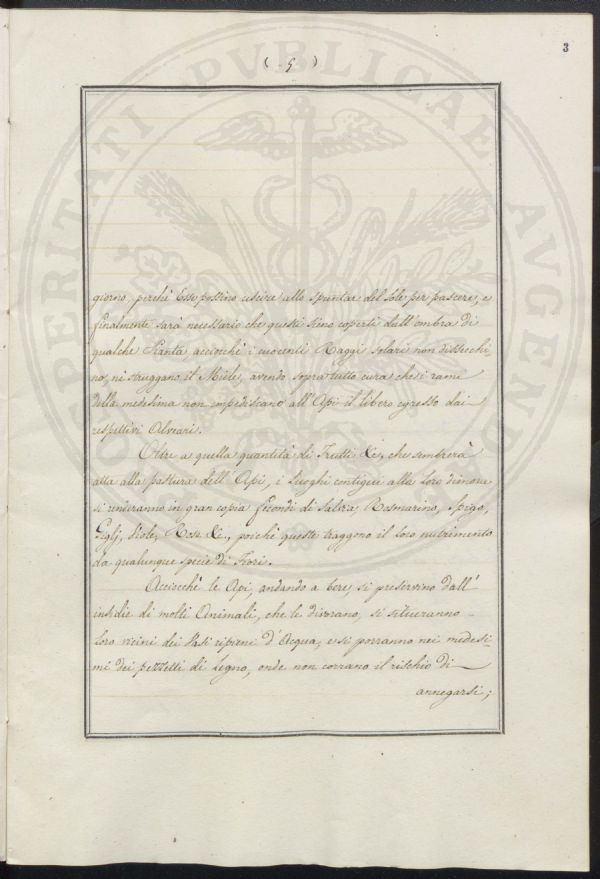 3
( 5 )
giorno, perchè Esse possino uscire allo spuntar del Sole per pascere, e
finalmente sarà necessario che questi sieno coperti dall'ombra di
qualche Pianta acciocchè i cuocenti Raggi solari non dissecchi-
no, nè struggano il Miele, avendo sopra tutto cura che i rami
della medesima non impediscano all'Api il libero egresso dai
respettivi Alveari.
Oltre a quella quantità di Frutti &c, che sembrerà
atta alla pastura dell'Api, i Luoghi contigui alla loro dimora
si renderanno in gran copia fecondi di Salvia, Rosmarino, Spigo,
Giglj, Viole, Rose &c., poichè queste traggono il loro nutrimento
da qualunque specie di Fiori.
Acciocchè le Api, andando a bere, si preservino dall'
insidie di molti Animali, che le divorano, si situeranno
loro vicini dei Vasi ripieni d'Acqua, e si porranno nei medesi-
mi dei pezzetti di Legno, onde non corrano il rischio di
annegarsi;
PROSPERITATI PVBLICAE AVGENDAE